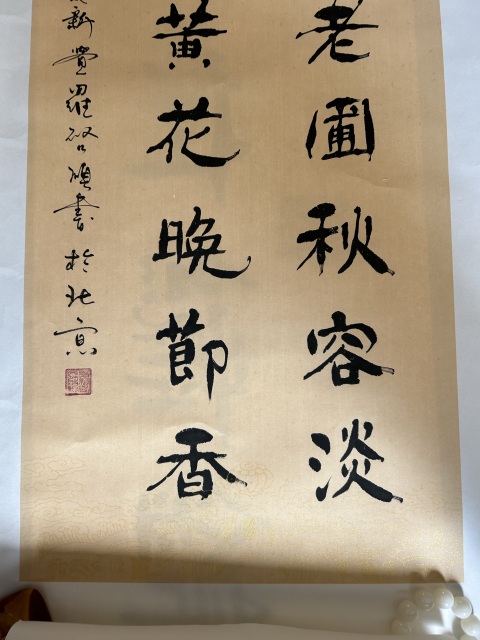 老圃秋容淡
黄花晚節香
新覺羅啓順書於北京